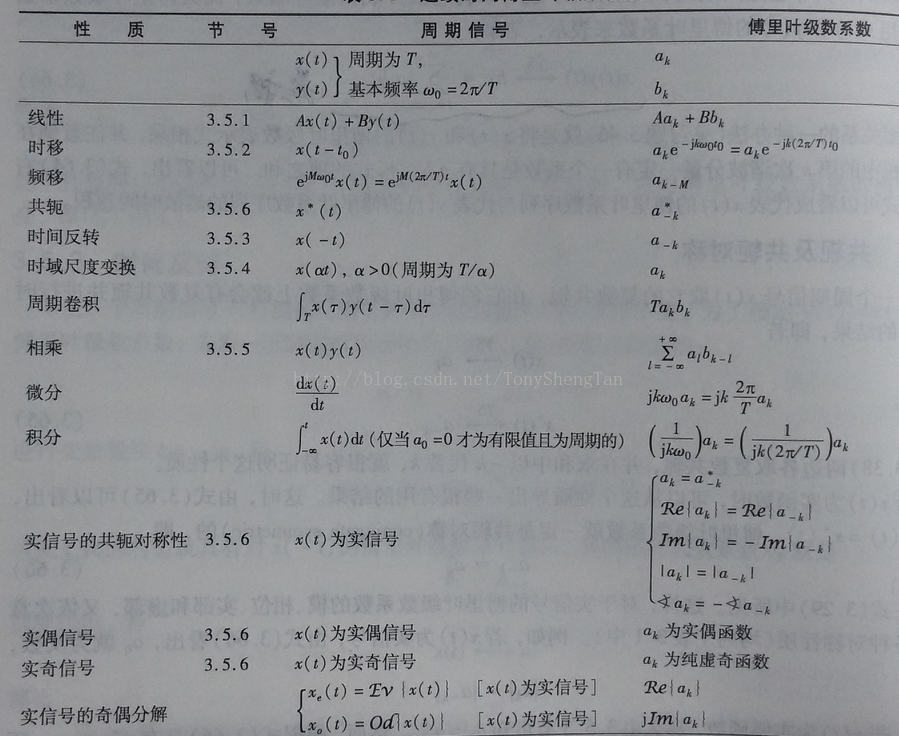 性 质 节 号 周期信号 傅里叶级数系数
x(t) } 周期为 T, a_k
y(t) } 基本频率 ω₀ = 2π/T b_k
线性 3.5.1 Ax(t) + By(t) Aa_k + Bb_k
时移 3.5.2 x(t - t₀) a_k e^{-jkω₀t₀} = a_k e^{-jk(2π/T)t₀}
频移 e^{jMω₀t}x(t) = e^{jM(2π/T)t}x(t) a_{k-M}
共轭 3.5.6 x*(t) a*_{-k}
时间反转 3.5.3 x(-t) a_{-k}
时域尺度变换 3.5.4 x(αt), α>0(周期为 T/α) a_k
周期卷积 ∫_T x(τ)y(t-τ)dτ Ta_kb_k
相乘 3.5.5 x(t)y(t) Σ_{l=-∞}^{+∞} a_l b_{k-l}
http://blog.csdn.net/TonyShengTan
微分 dx(t)/dt jkω₀a_k = jk (2π/T) a_k
积分 ∫_{-∞}^{t} x(t)dt (仅当 a₀ = 0 才为有限值且为周期的) (1/(jkω₀))a_k = (1/(jk(2π/T)))a_k
实信号的共轭对称性 3.5.6 x(t)为实信号
{ a_k = a*_{-k}
Re{a_k} = Re{a_{-k}}
Im{a_k} = -Im{a_{-k}}
|a_k| = |a_{-k}|
∢a_k = -∢a_{-k}
实偶信号 3.5.6 x(t)为实偶信号 a_k 为实偶函数
实奇信号 3.5.6 x(t)为实奇信号 a_k 为纯虚奇函数
实信号的奇偶分解
{ x_e(t) = Ev{x(t)} [x(t)为实信号] Re{a_k}
x_o(t) = Od{x(t)} [x(t)为实信号] jIm{a_k}